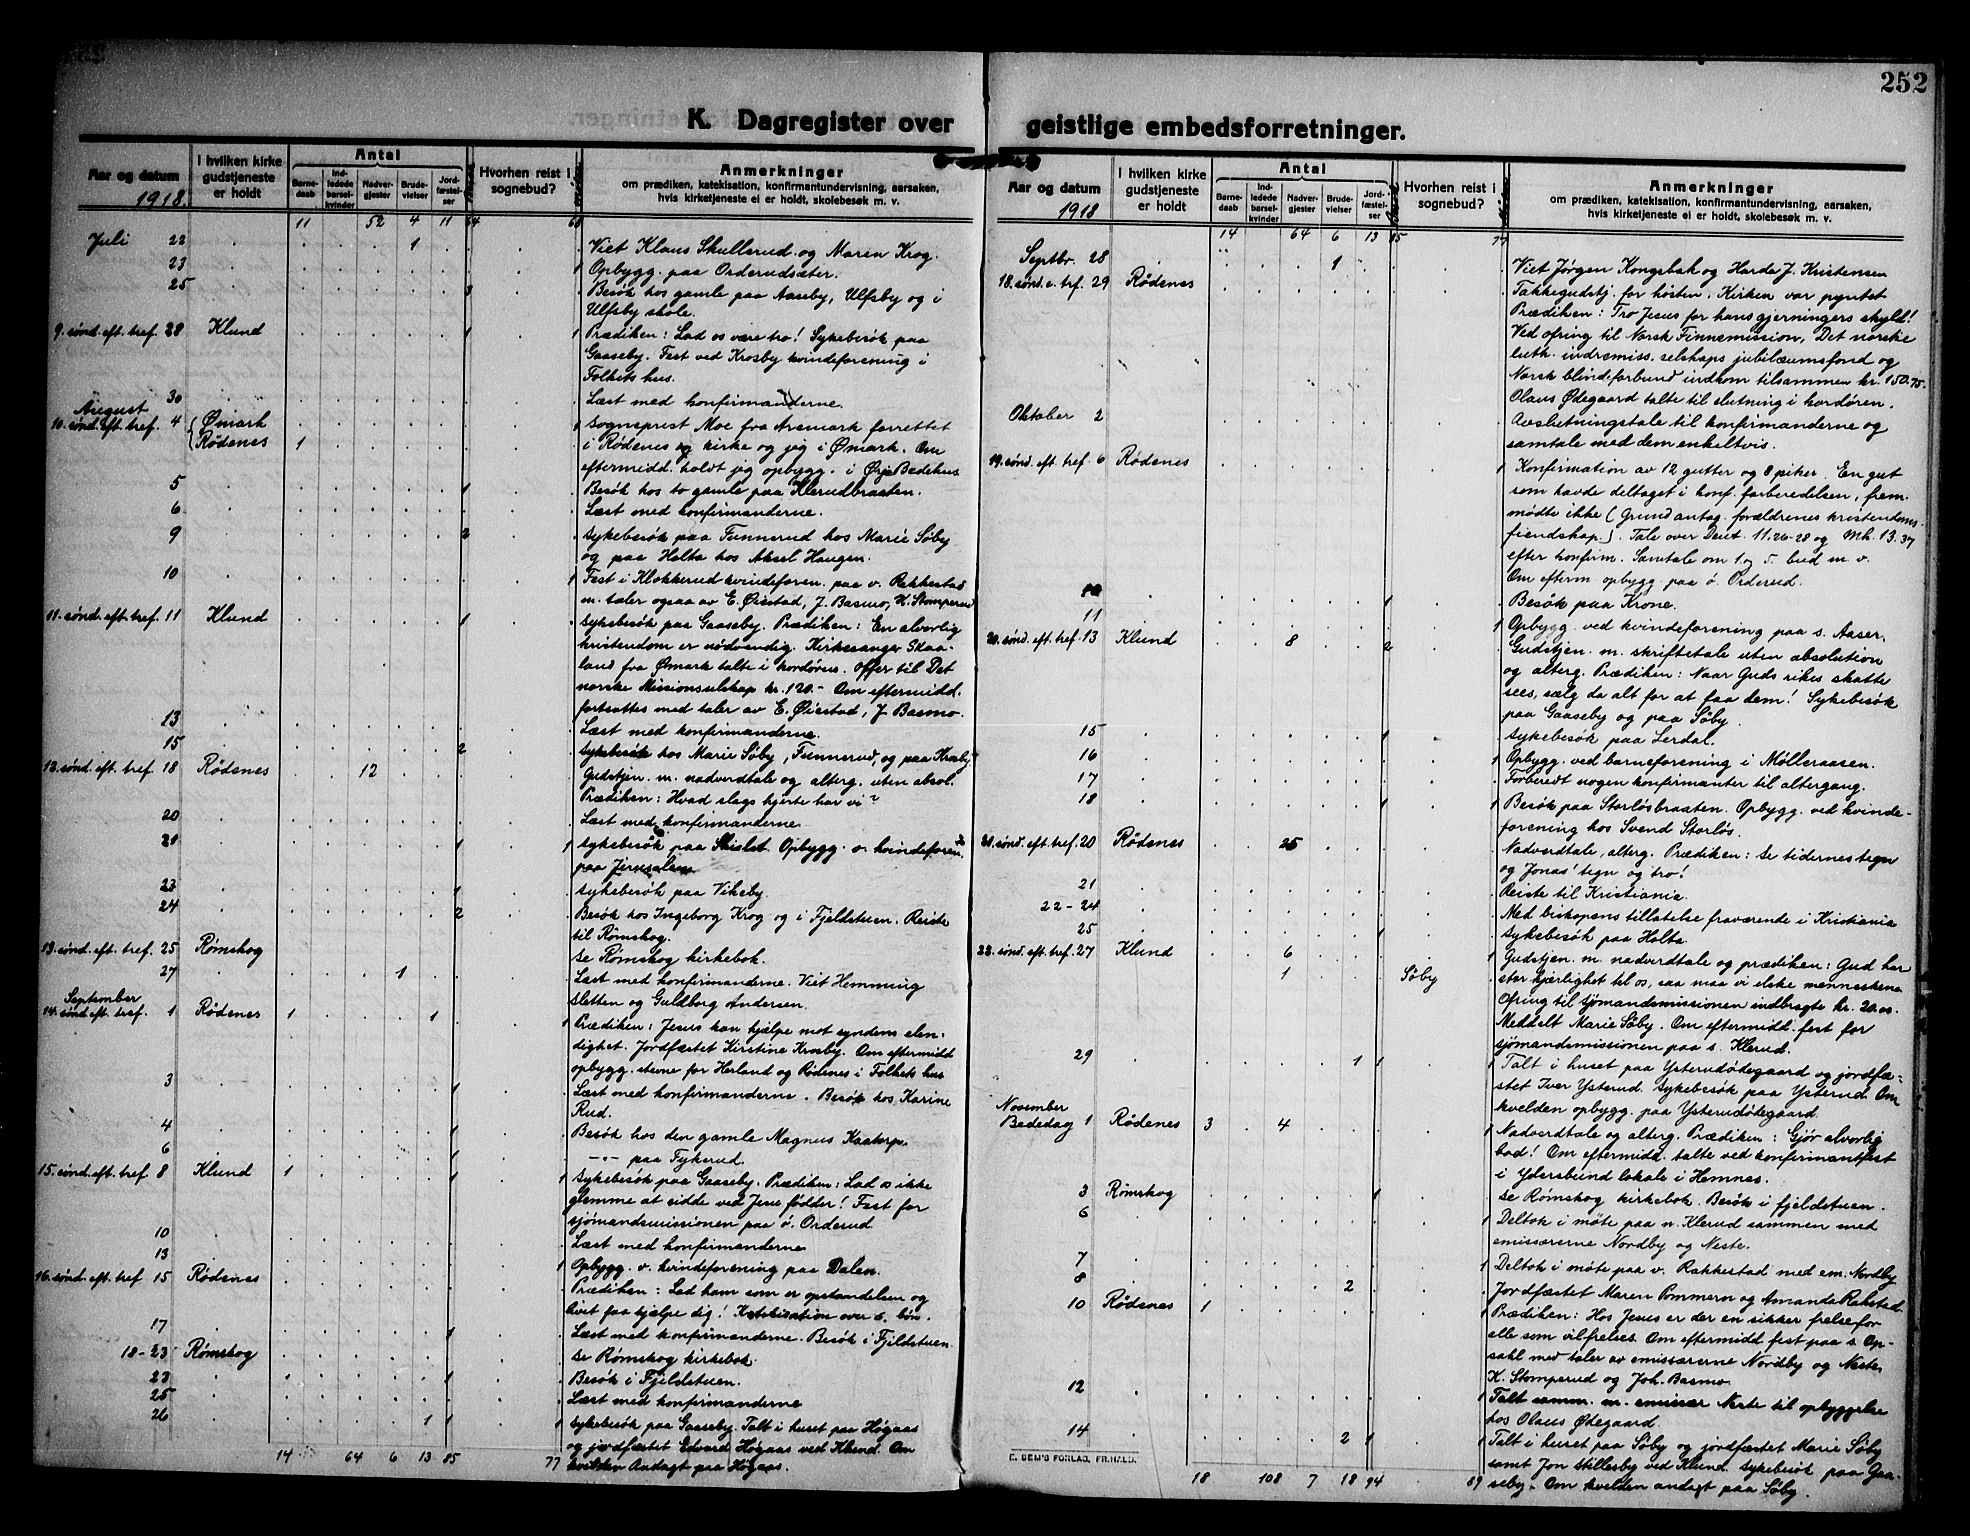 252
K. Dagregister over geistlige embedsforretninger.
Aar og datum
1918.
I hvilken kirke gudstjeneste er holdt
Antal
Barnedaab
Indledede barselkvinder
Nadvergjester
Brudevielser
Jordfæstelser
Hvorhen reist i sognebud?
Anmerkninger
om prædiken, katekisation, konfirmantundervisning, aarsaken, hvis kirketjeneste ei er holdt, skolebesøk m. v.
11 52 4 11 64 68
Juli 22 1 Viet Klaus Skullerud og Maren Krog.
23 1 Opbygg. paa Orderudsæter.
25 3 Besök hos gamle paa Aaseby, Ulfsby og i
Ulfsby skole.
9. sønd. eft. tref. 28 Klund 1 1 Prædiken: Lad os være tro! Sykebesök paa
Gaaseby. Fest ved Krosby kvindeforening i
Folkets hus.
30 Læst med konfirmanderne.
August
10. sønd. eft. tref. 4 Ømark 1 Sogneprest Moe fra Aremark forrettet
Rødenes 1 i Rødenes kirke og jeg i Ømark. Om
eftermidd. holdt jeg opbygg. i Ørje Bedehus
5 1 Besök hos to gamle paa Klerudbraaten.
6 Læst med konfirmanderne.
9 2 Sykebesök paa Funnerud hos Marie Söby
og paa Holta hos Aksel Haugen.
10 1 Fest i Klokkerud kvindeforen. paa v. Rakkestad
m. taler ogsaa av E. Øiestad, J. Basmo, H. Stomperud
11. sønd. eft. tref. 11 Klund 1 Sykebesök paa Gaaseby. Prædiken: En alvorlig
kristendom er nødvendig. Kirkesanger Skaa-
land fra Ømark talte i kordøren. Offer til Det
norske Missionsselskap kr. 120.- Om eftermidd.
fortsattes med taler av E. Øiestad, J. Basmo.
13 Læst med konfirmanderne.
15 2 Sykebesök hos Marie Söby, Funnerud, og paa Krosby
12. sønd. eft. tref. 18 Rødenes 12 Gudstjen. m. nadverdtale og alterg. uten absol.
Prædiken: Hvad slags hjerte har vi?
20 Læst med konfirmanderne
21 1 1 Sykebesök paa Opbygg. v. kvindeforen.
paa Jerusalem
23 1 Sykebesök paa Vikeby.
24 2 Besök hos Ingeborg Krog og i Fjeldstuen. Reiste
til Rømskog.
13. sønd. eft. tref. 25 Rømskog Se Rømskog kirkebok.
27 1 Læst med konfirmanderne. Viet Hemming
Sletten og Guldborg Andersen.
September
14. sønd. eft. tref. 1 Rødenes 1 1 1 Prædiken: Jesus kan hjælpe mot syndens elen-
dighet. Jordfæstet Kirstine Krosby. Om eftermidd
opbygg. stevne for Herland og Rødenes i Folkets hus
3 1 Læst med konfirmanderne. Besök hos Karine
Rud.
4 1 Besök hos den gamle Magnus Kaatorp.
6 1 -"- paa Tykerud.
15. sønd. eft. tref. 8 Klund 1 1 1 Sykebesök paa Gaaseby. Prædiken: Lad os ikke
glemme at sidde ved Jesu födder! Fest for
sjömandsmissionen paa ö. Orderud
10 Læst med konfirmanderne
13 1 Opbygg. v. kvindeforening paa Dalen.
16. sønd. eft. tref. 15 Rødenes Prædiken: Lad ham som er opstandelsen og
livet faa hjælpe dig! Katekisation over 6. bön.
17 1 Læst med konfirmanderne. Besök i Fjeldstuen.
18-23 Rømskog Se Rømskog kirkebok.
23 1 Besök i Fjeldstuen.
25 Læst med konfirmanderne
26 1 1 1 Sykebesök paa Gaaseby. Talt i huset paa Högaas
og jordfæstet Edvard Högaas ved Klund. Om
kvelden Andagt paa Högaas.
14 64 6 13 85 77
Aar og datum
1918
I hvilken kirke gudstjeneste er holdt
Antal
Barnedaab
Indledede barselkvinder
Nadvergjester
Brudevielser
Jordfæstelser
Hvorhen reist i sognebud?
Anmerkninger
om prædiken, katekisation, konfirmantundervisning, aarsaken, hvis kirketjeneste ei er holdt, skolebesøk m. v.
14 64 6 13 85 77
Septbr. 28 1 Viet Jørgen Kongsbak og Harda J. Kristensen
18. sønd. e. tref. 29 Rødenes Takkegudstj. for høsten. Kirken var pyntet
Prædiken: Tro Jesus for hans gjerningers skyld!
Ved ofring til Norsk Finnemission, Det norske
luth. indremiss. selskaps jubilæumsfond og
Norsk blindeforbund indkom tilsammen kr. 150.75.
Olaus Ødegaard talte til slutning i kordøren.
Oktober 2 Avslutningstale til konfirmanderne og
samtale med dem enkeltvis.
19. sønd. eft. tref. 6 Rødenes 1 Konfirmation av 12 gutter og 8 piker. En gut
som havde deltaget i konf. forberedelsen, frem-
mödte ikke (Grund antag. forældrenes kristendoms-
fiendskap). Tale over Deut. 11.26-28 og Mh. 13.37
efter konfirm. Samtale om 1. og 5. bud m. v.
Om efterm. opbygg paa ö. Orderud.
1 Besök paa Krone.
11 1 Opbygg. ved kvindeforening paa s. Aaser.
20. sønd. eft. tref. 13 Klund 8 2 Gudstjen. m. skriftetale uten absolution
og alterg. Prædiken: Naar Guds rikes skatte
sees, sælg da alt for at faa dem! Sykebesök
paa Gaaseby og paa Söby.
15 1 Sykebesök paa Lerdal.
16 1 Opbygg. ved barneforening i Mølleraasen.
17 Forberedt nogen konfirmanter til altergang.
18 1 1 Besök paa Storlösbraaten. Opbygg. ved kvinde-
forening hos Svend Storlös.
21. sønd. eft. tref. 20 Rødenes 25 Nadverdtale, alterg. Prædiken: Se tidernes tegn
og Jonas' tegn og tro!
21 Reiste til Kristiania.
22-24 Med biskopens tillatelse fraværende i Kristiania
25 1 Sykebesök paa Holta
22. sønd. eft. tref. 27 Klund 6 1 Gudstjen. m. nadverdtale og prædiken: Gud har
1 Söby stor kjærlighet til os, saa maa vi elske menneskene
Ofring til sjömandsmissionen indbragte kr. 20.00.
Meddelt Marie Söby. Om eftermidd. fest for
sjömandsmissionen paa s. Klerud.
29 1 1 1 Talt i huset paa Ysterudödegaard og jordfæ-
stet Iver Ysterud. Sykebesök paa Ysterud. Om
kvelden opbygg. paa Ysterudödegaard.
November
Bededag 1 Rødenes 3 4 1 Nadverdtale og alterg. Prædiken: Gjör alvorlig
bod! Om eftermidd. talte ved konfirmantfest
i Ydersbund lokale i Hemnes.
3 Rømskog 1 Se Rømskog kirkebok. Besök i fjeldstuen.
6 1 Deltok i möte paa n. Klerud sammen med
emissærerne Nordby og Neste.
7 1 Deltok i möte paa v. Rakkestad med em. Nordby
8 2 Jordfæstet Maren Pommern og Amanda Rakstad
10 Rødenes 1 1 Prædiken: Hos Jesus er der en sikker frelse for
alle som vil frelses. Om eftermidd fest paa s. Op-
sahl med taler av emissærerne Nordby og Neste,
H. Stomperud og Joh. Basmo.
12 1 Talt samm. m. emissær Neste til opbyggelse
hos Olaus Ødegaard.
14 2 1 1 Talt i huset paa Söby og jordfæstet Marie Söby
samt Jon Stillesby ved Klund. Sykebesök paa Gaa-
seby. Om kvelden andagt paa Söby.
E. SEM'S FORLAG, FR.HALD.
18 108 7 18 94 89